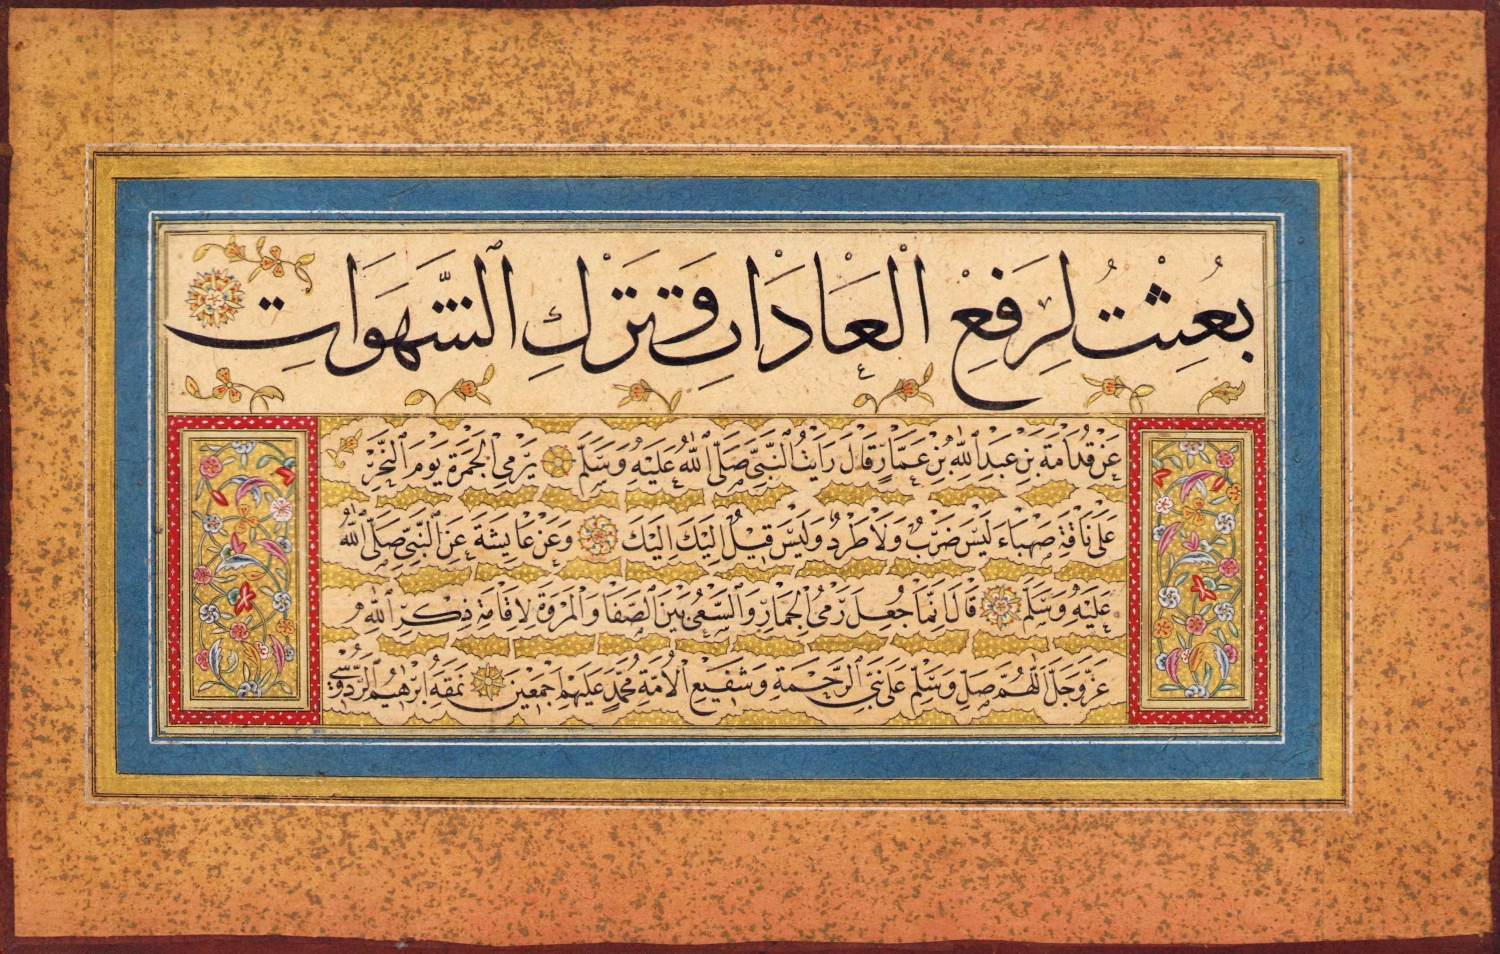 بُعِثْتُ لِرَفْعِ الْعَادَاتِ وَتَرْكِ الشَّهَوَاتِ
عَنْ قُدَامَةَ بْنِ عَبْدِ اللّٰهِ بْنِ عَمَّارٍ قَالَ رَاَيْتُ النَّبِيَّ صَلَّى اللّٰهُ عَلَيْهِ وَسَلَّمَ يَرْمِي الْجَمْرَةَ يَوْمَ النَّحْرِ
عَلَى نَاقَةٍ صَهْبَاءَ لَيْسَ ضَرْبٌ وَلَا طَرْدٌ وَلَيْسَ قِيلُ اِلَيْكَ اِلَيْكَ وَعَنْ عَايِشَةَ عَنِ النَّبِيِّ صَلَّى اللّٰهُ
عَلَيْهِ وَسَلَّمَ قَالَ اِنَّمَا جُعِلَ رَمْيُ الْجِمَارِ وَالسَّعْيُ بَيْنَ الصَّفَا وَالْمَرْوَةِ لِاِقَامَةِ ذِكْرِ اللّٰهِ
عَزَّ وَجَلَّ اَللّٰهُمَّ صَلِّ وَسَلِّمْ عَلَى نَبِيِّ الرَّحْمَةِ وَشَفِيعِ الْاُمَّةِ مُحَمَّدٍ عَلَيْهِمْ اَجْمَعِينَ نَمَقَهُ اِبْرٰهِيمُ الرُّدُوسِيُّ